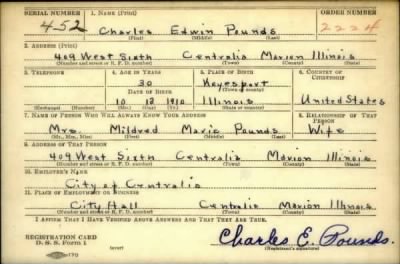 SERIAL NUMBER 1. NAME (Print) ORDER NUMBER
452 Charles Edwin Pounds 2224
(First) (Middle) (Last)
2. ADDRESS (Print)
409 West Sixth Centralia Marion Illinois
(Number and street or R. F. D. number) (Town) (County) (State)
3. TELEPHONE 4. AGE IN YEARS 5. PLACE OF BIRTH 6. COUNTRY OF CITIZENSHIP
30 Keyesport
DATE OF BIRTH (Town or county)
10 13 1910 Illinois United States
(Exchange) (Number) (Mo.) (Day) (Yr.) (State or country)
7. NAME OF PERSON WHO WILL ALWAYS KNOW YOUR ADDRESS 8. RELATIONSHIP OF THAT PERSON
Mrs. Mildred Marie Pounds Wife
(Mr., Mrs., Miss) (First) (Middle) (Last)
9. ADDRESS OF THAT PERSON
409 West Sixth Centralia Marion Illinois
(Number and street or R. F. D. number) (Town) (County) (State)
10. EMPLOYER'S NAME
City of Centralia
11. PLACE OF EMPLOYMENT OR BUSINESS
City Hall Centralia Marion Illinois
(Number and street or R. F. D. number) (Town) (County) (State)
I AFFIRM THAT I HAVE VERIFIED ABOVE ANSWERS AND THAT THEY ARE TRUE.
REGISTRATION CARD
D. S. S. Form 1 (over) Charles E. Pounds.
(Registrant's signature)